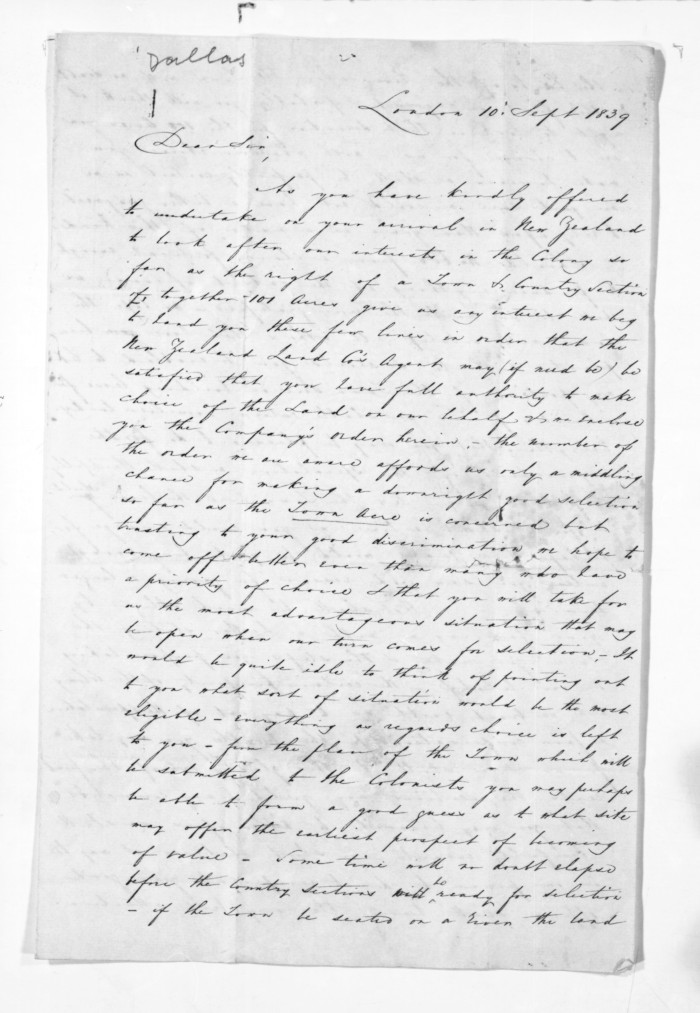 Dallas
London 10: Sept 1839
Dear Sir,
As you have kindly offered
to undertake on your arrival in New Zealand
to look after our interests in the Colony so
far as the right of a Town & Country Section
together 101 Acres give us any interest we beg
to hand you these few lines in order that the
New Zealand Land Co's Agent may (if need be) be
satisfied that you have full authority to make
choice of the Land on our behalf & we enclose
you the Company's order herein. - the number of
the order we are aware affords us only a middling
chance for making a downright good selection
so far as the Town Acre is concerned but
trusting to your good discrimination we hope to
come off better even than many who have
a priority of choice & that you will take for
us the most advantageous situation that may
be open when our turn comes for selection. - It
would be quite idle to think of pointing out
to you what sort of situation would be the most
eligible - everything as regards choice is left
to you - from the plan of the Town which will
be submitted to the Colonists you may perhaps
be able to form a good guess as to what site
may offer the earliest prospect of becoming
of value - Some time will no doubt elapse
before the Country Sections will be ready for selection
- if the Town be seated on a River the land